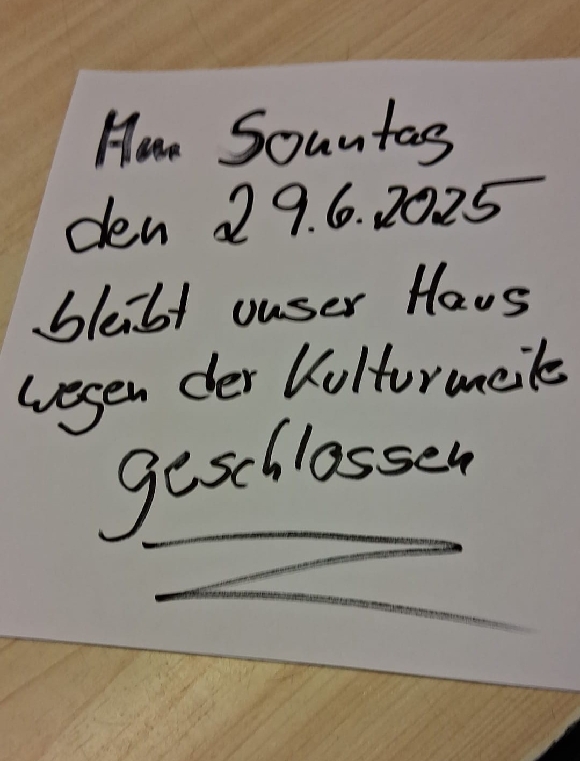 Am Sonntag
den 29.6.2025
bleibt unser Haus
wegen der Kulturmeile
geschlossen